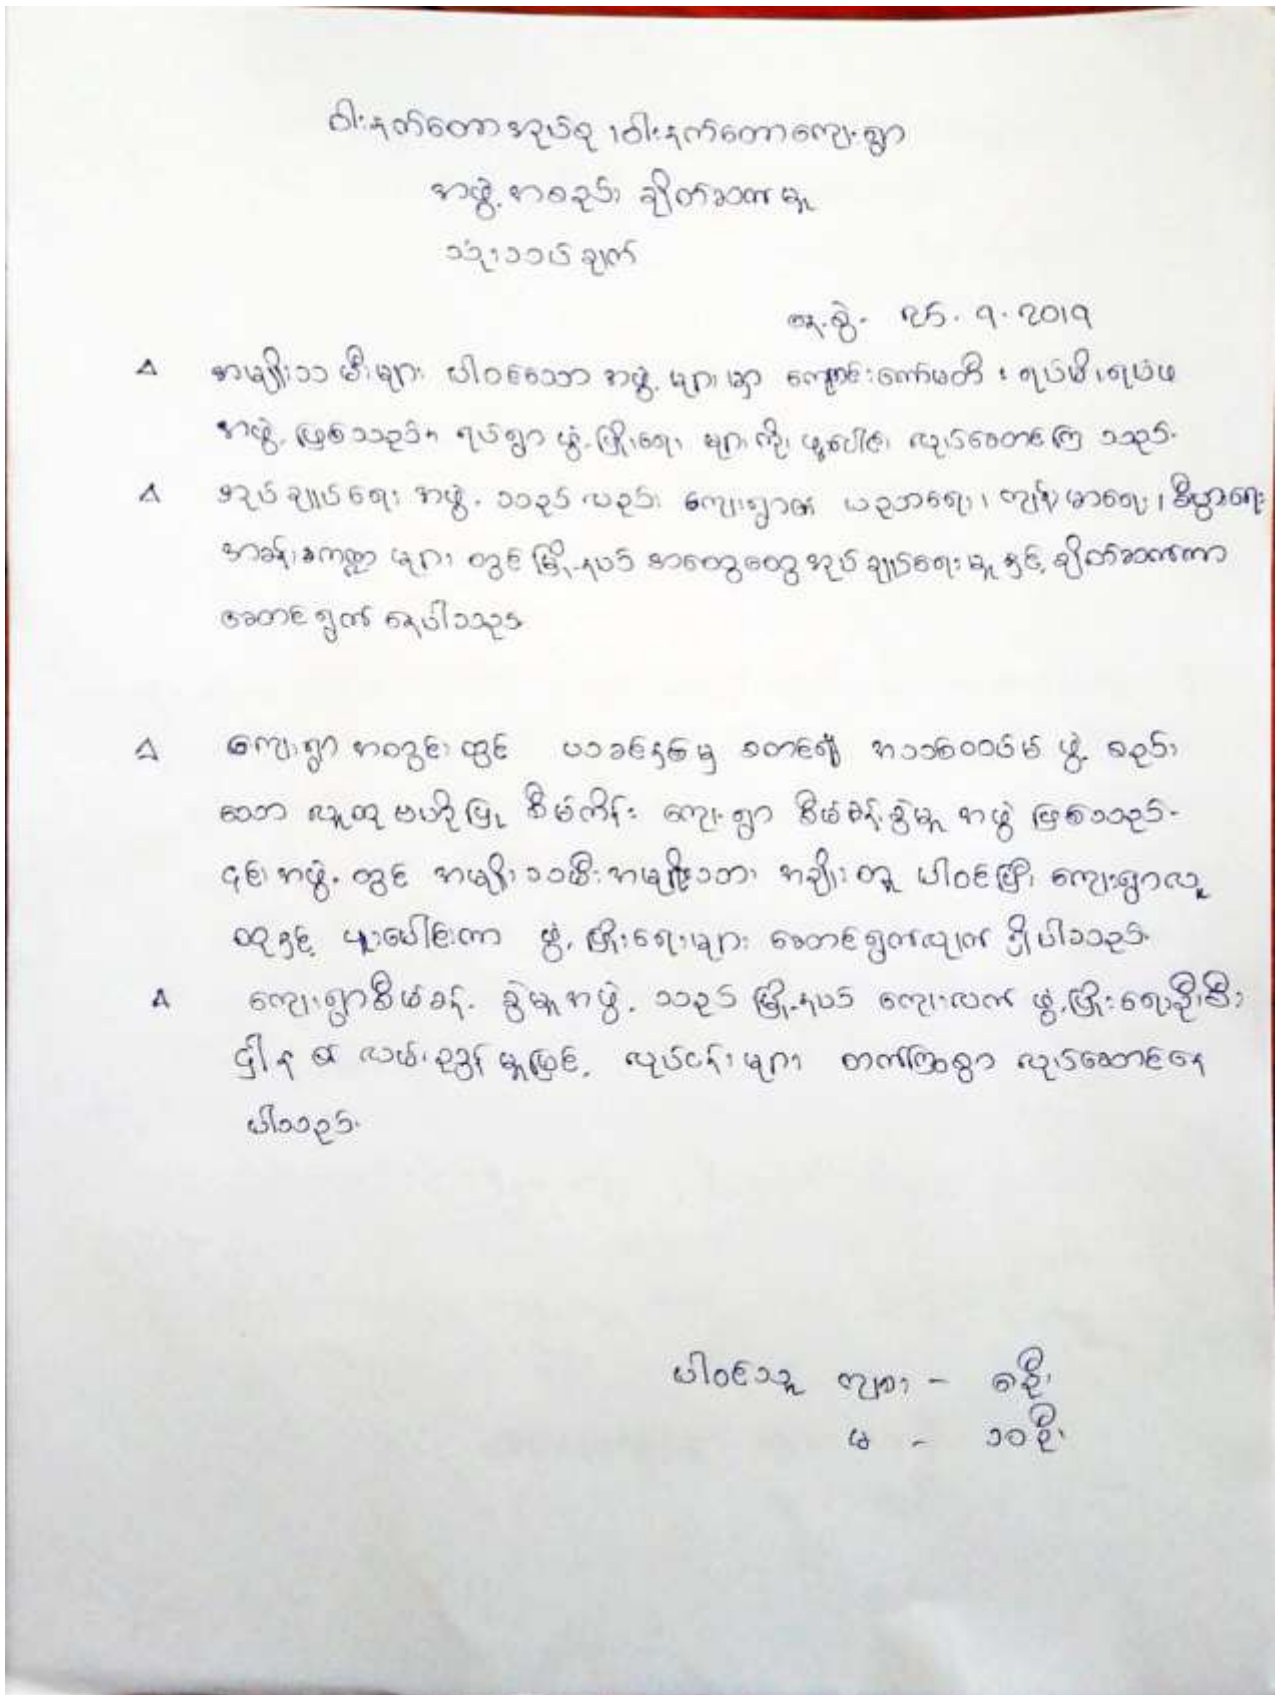 ဝါးနက်တောအုပ်စု ၊ ဝါးနက်တောကျေးရွာ
အဖွဲ့အစည်း ချိတ်ဆက်မှု
သုံးသပ်ချက်
နေ့စွဲ - ၂၅ . ၇ . ၂၀၁၇
∆ အမျိုးသမီးများ ပါဝင်သော အဖွဲ့များမှာ ကျောင်းကော်မတီ ၊ ရပ်မိ၊ရပ်ဖ
အဖွဲ့ ဖြစ်သည်။ ရပ်ရွာ ဖွံ့ဖြိုးရေး များကို ပူးပေါင်း လုပ်ဆောင်ကြ သည်။
∆ အုပ်ချုပ်ရေး အဖွဲ့ သည် လည်း ကျေးရွာ၏ ပညာရေး ၊ ကျန်းမာရေး ၊ စီးပွားရေး
အခန်းကဏ္ဍ များ တွင် မြို့နယ် အထွေထွေ အုပ်ချုပ်ရေး မှူး နှင့် ချိတ်ဆက်ကာ
ဆောင်ရွက် နေပါသည်။
∆ ကျေးရွာ အတွင်း တွင် ယခင်နှစ်မှ စတင်၍ အသစ်ထပ်မံ ဖွဲ့ စည်း
သော လူထု ဗဟိုပြု စီမံကိန်း ကျေးရွာ စီမံခန့်ခွဲမှု အဖွဲ့ ဖြစ်သည်။
၎င်းအဖွဲ့ တွင် အမျိုးသမီး အမျိုးသား အချိုးတူ ပါဝင်ပြီး ကျေးရွာလူ
ထုနှင့် ပူးပေါင်းကာ ဖွံ့ဖြိုးရေးများ ဆောင်ရွက်လျက် ရှိပါသည်။
∆ ကျေးရွာစီမံခန့် ခွဲမှုအဖွဲ့ သည် မြို့နယ် ကျေးလက် ဖွံ့ဖြိုးရေးဦးစီး
ဌါန ၏ လမ်းညွှန် မှုဖြင့် လုပ်ငန်းများ တက်ကြွစွာ လုပ်ဆောင်နေ
ပါသည်။
ပါဝင်သူ ကျား - ၈ဦး
မ - ၁၀ဦး